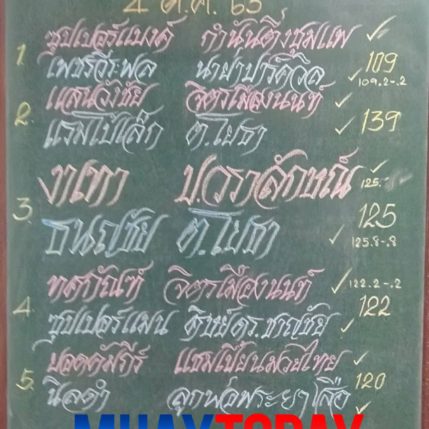 4 ต.ค. 63
1. ซุปเปอร์แบงค์ กำนันติ่งชุมแพ ✓
เพชรวีระพล นายาปาร์ควิล ✓ 109
109.2-.2
2. แสนวังชัย จิตรเมืองนนท์ ✓
แรมโบ้เล็ก ต.โยธา ✓ 139
งาเทา ป.วราลักษณ์ ✓
125.
3. 125
ธนญชัย ต.โยธา ✓ 125.8-.8
ทศกัณฑ์ จิตรเมืองนนท์ ✓ 122.2-.2
4. 122
ซุปเปอร์แมน ✓
ยอดคัมภีร์ แชมเปี้ยนมวยไทย ✓
5. 120
นิลดำ ลูกพ่อพระยาเสือ ✓
MUAYTODAY